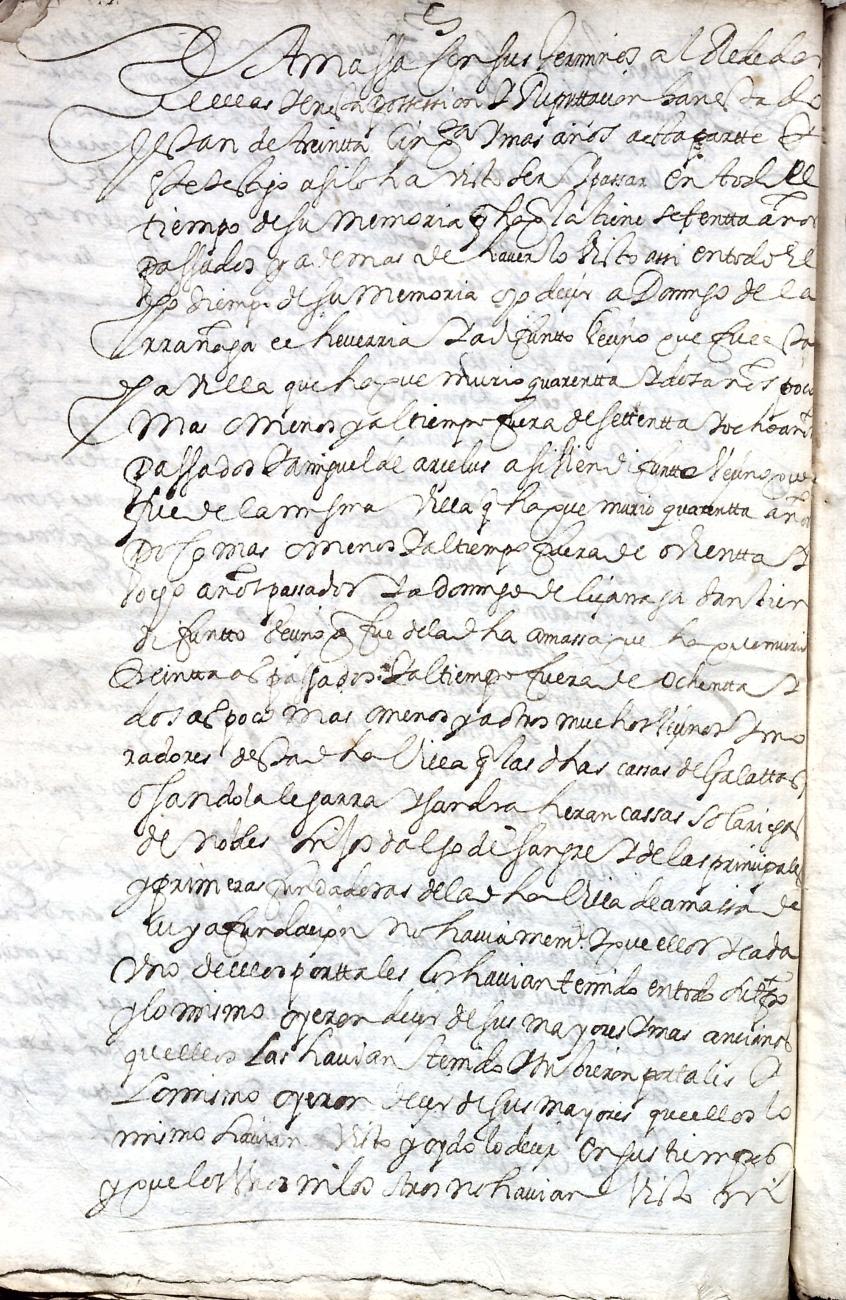 de Amassa con sus terminos al Rededor
de ellas y en esta possession y Reputtacion han estado
y estan de treintta cinco y mas años a esta partte y
este testigo asi lo ha visto ser y passar en todo el
tiempo de su memoria q la tiene de sesentta años
passados y ademas de haverlo visto assi en todo el
dho tiempo de su Memoria oyo decir a Domingo de la
rrañaga echeverria ya difuntto vecino que fue de
la Villa que ha que murio quarentta y dos años poco
mas o menos y al tiempo fuera de settentta y ocho años
passados y a miguel de arcelus asi bien difuntto vecino que
fue de la misma villa q ha que murio quarentta años
poco mas o menos y al tiempo fuera de ochentta y
ocho años passados y a domingo de liçarraga dantien
difuntto vecino q fue de la dha amassa que ha que murio
treintta as passados y al tiempo fuera de ochentta y
dos as poco mas o menos y a otros muchos vecinos y mo
radores de esta dha Villa q las dhas cassas de Galattas
o Sandola legarra y sandra heran cassas solariegas
de nobles hijos dalgo de sangre y de las principales
y primeras fundadoras de la dha Villa de amassa de
cuya fundacion no havia mem.ª y que ellos y cada
uno de ellos por ttales los havian tenido en todo su tpo
y lo mismo oyeron decir de sus mayores y mas ancianos
que ellos las havian tenido y tubieron por tales y
lo mismo oyeron decir de sus mayores que ellos lo
mismo havian visto y oydo lo decir en sus tiempos
y que los unos ni los otros no havian visto ni